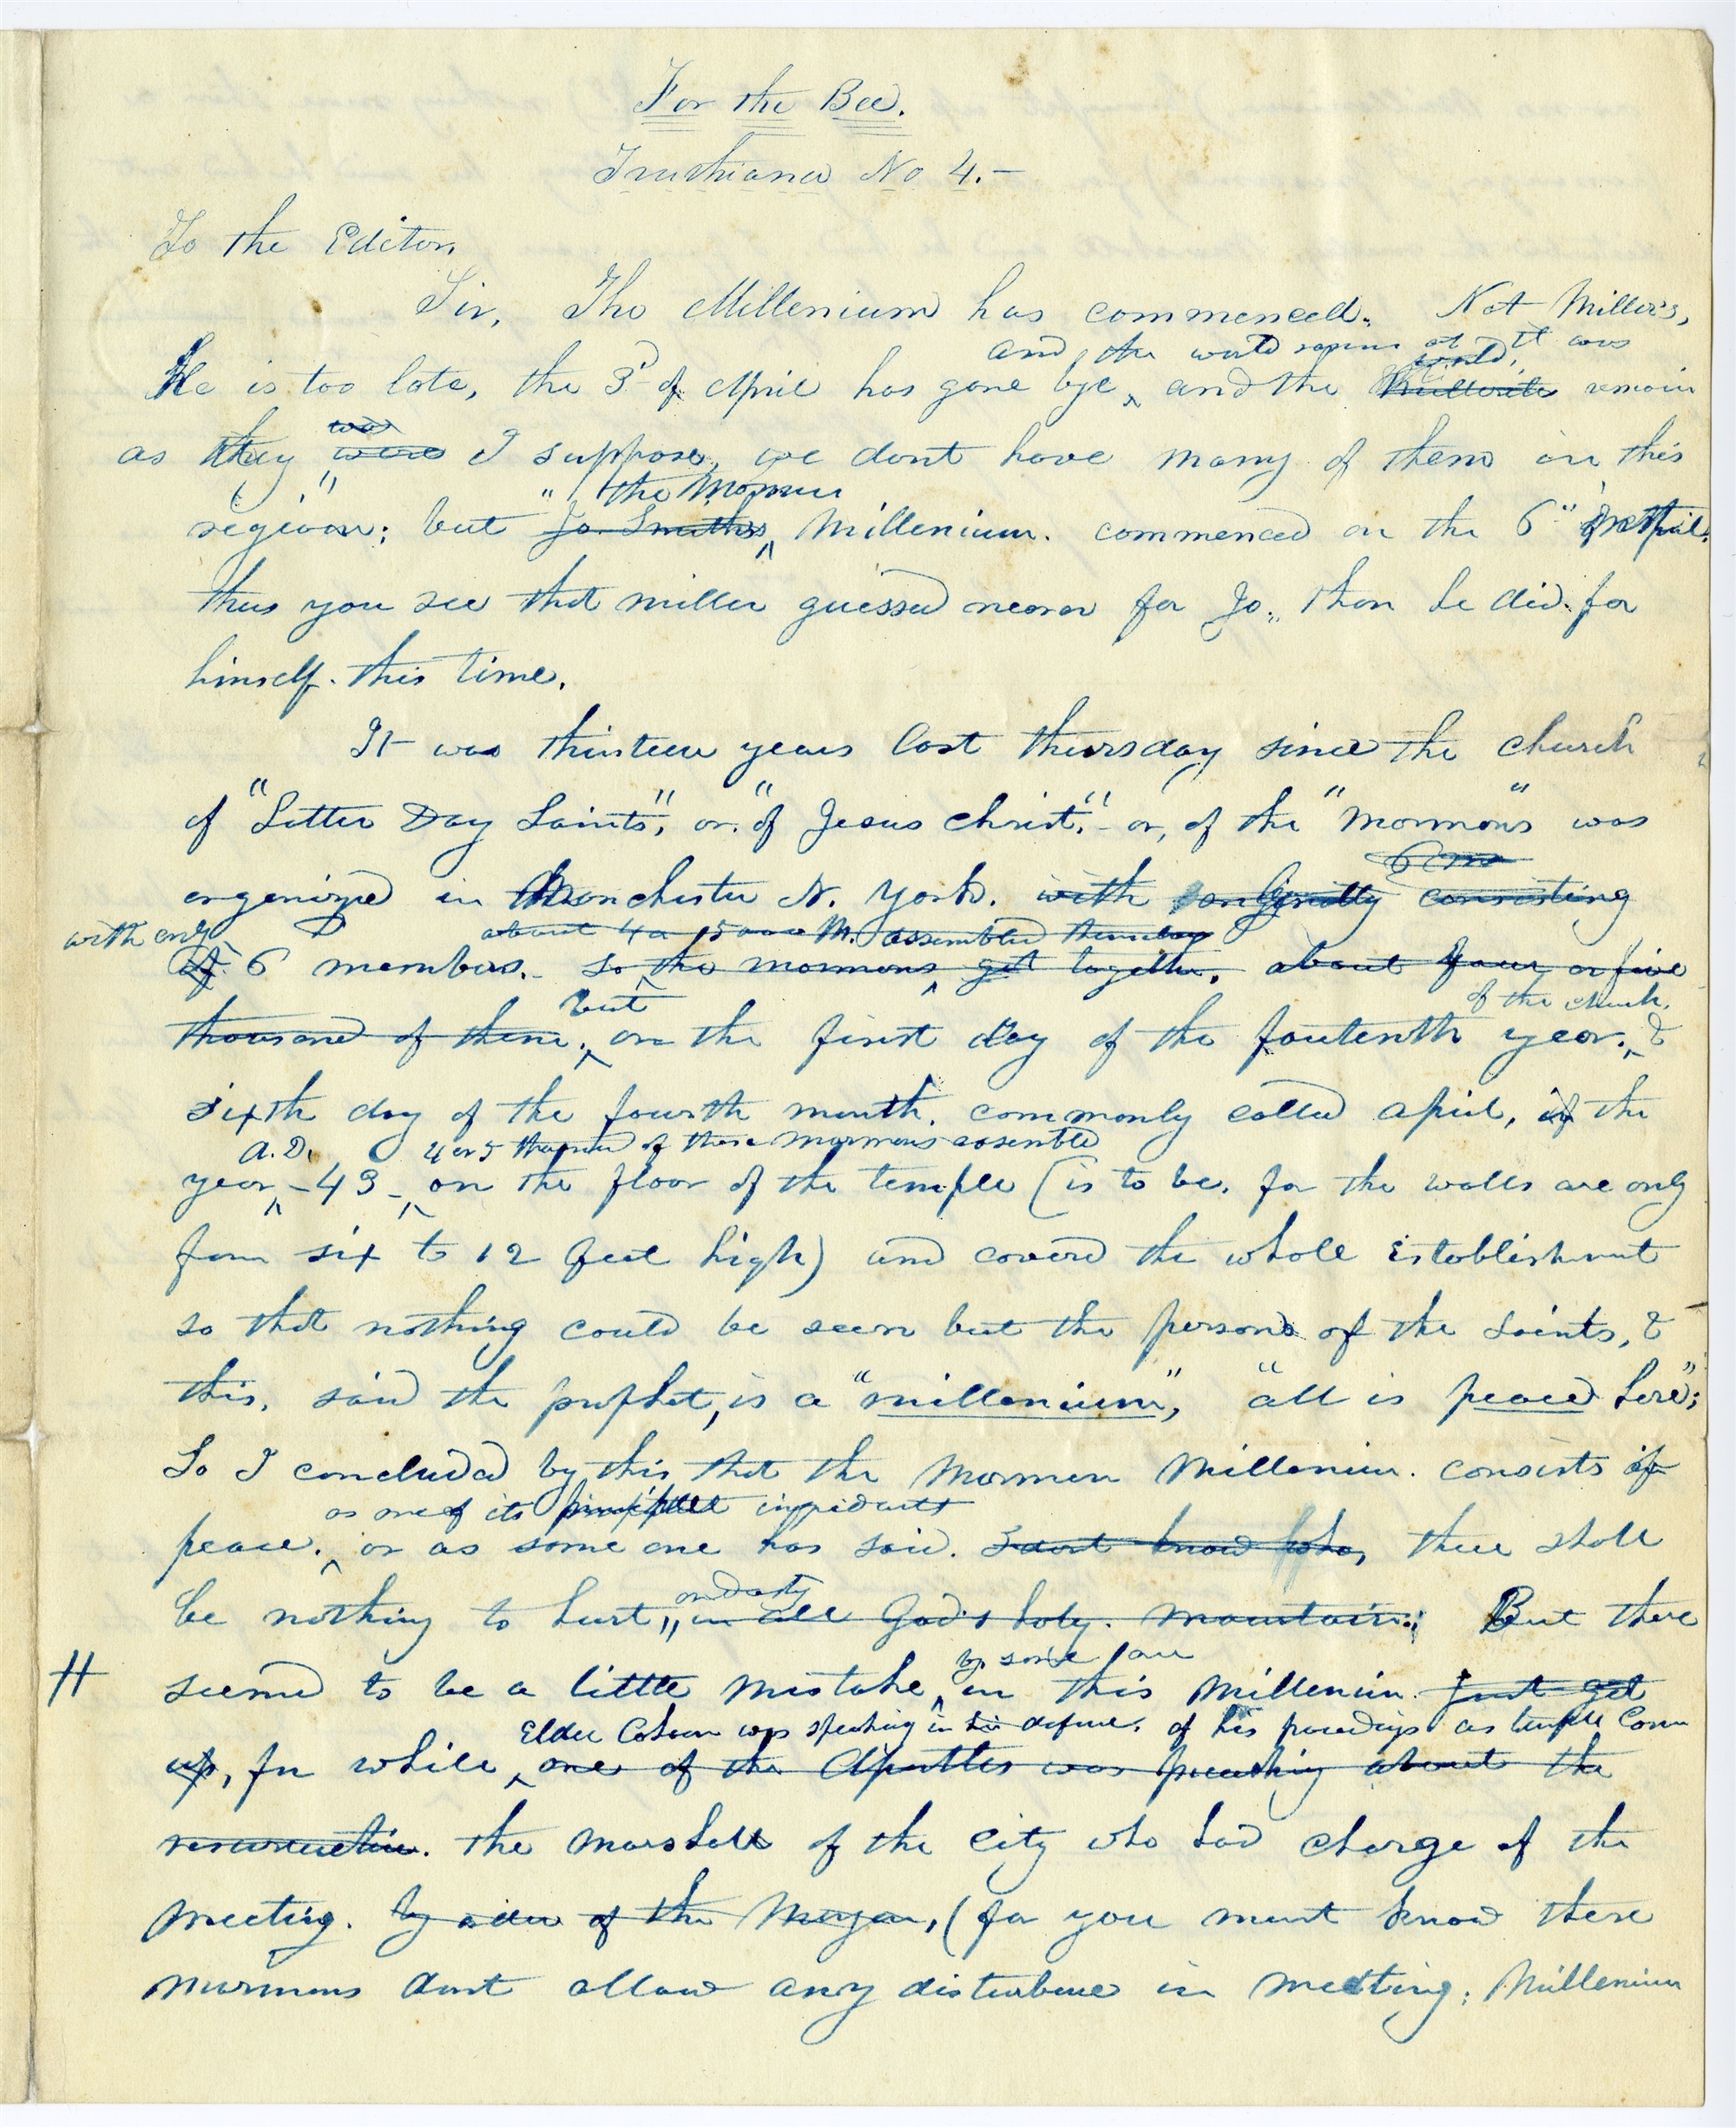 For the Bee.
Truthiana No 4.—
To the Editor,
Sir, The Millenium has commenced. Not Miller's,
and the world remains as it was
world,
He is too late, the 3d of April has gone bye, and the Millerites remain
was
as they were I suppose, we dont have many of them in this
" the Mormon
region; but Jo Smiths Millenium. commenced on the 6" of April.
thus you see that miller guessed nearer for Jo. than he did for
himself. this time.
It was thirteen years last thursday since the church
of "Latter Day Saints", or "of Jesus Christ."- or, of the "Mormons" was
6 me
organized in Manchester N. York. with consisting
with only
about 4 or 5000 M. assembled thursday
of 6 members. so the mormons get together, about four or five
but
of the church,
thousand of them. on the first day of the fouteenth year. &
sixth day of the fourth month. commonly called april, of the
A.D. 4 or 5 thousand of these mormons assembled
year -43- on the floor of the temple (is to be. for the walls are only
from six to 12 feet high) and covered the whole establishment
so that nothing could be seen but the persons of the saints, &
this, said the prophet, is a "millenium", "all is peace here";
So I concluded by this that the Mormon Millenium. consists of
as one of its principal ingridients
peace. or as some one has said. I dont know who, there shall
and destroy
be nothing to hurt, in all God's holy. mountain; But there
by some one
seemed to be a little mistake in this Millenium. Just get
Elder Cahoon was speaking in his defence. of his proceedings as temple Com
up, for while one of the Apostles was preaching about the
resurrection. the marshall of the city who had charge of the
meeting. by order of the Mayor, (for you must know these
mormons dont allow any disturbance in meeting; Millenium
H